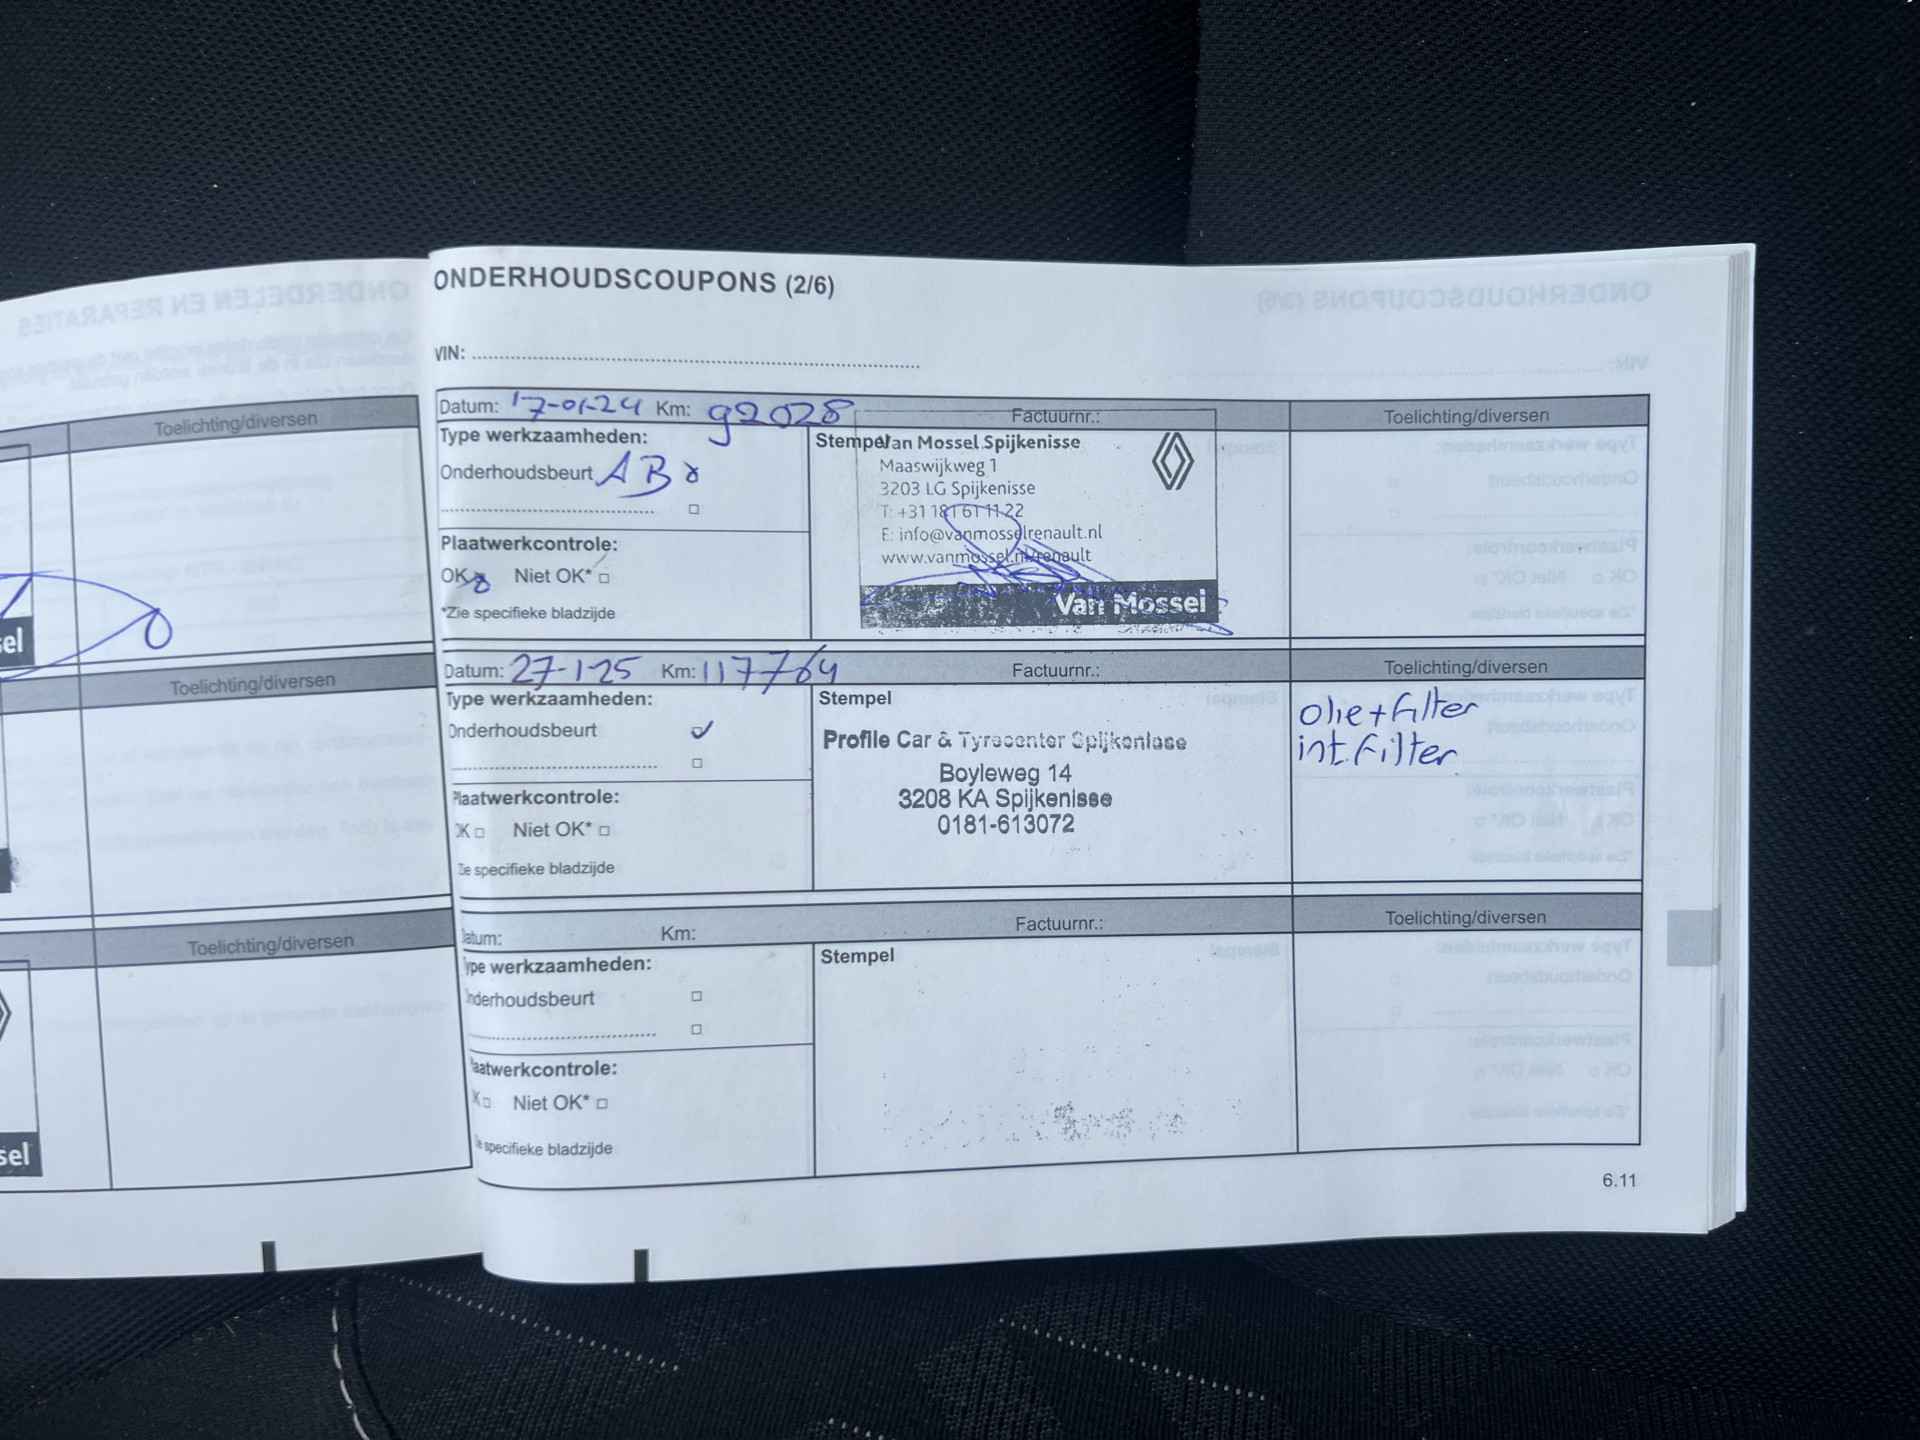 Toelichting/diversen
sel
Toelichting/diversen
Toelichting/diversen
sel
ONDERHOUDSCOUPONS (2/6)
VIN:
Datum: 17-01-24 Km: 92028 Factuurnr.: Toelichting/diversen
Type werkzaamheden:
Onderhoudsbeurt AB
Plaatwerkcontrole:
OK Niet OK*
*Zie specifieke bladzijde
Stempel
Van Mossel Spijkenisse
Maaswijkweg 1
3203 LG Spijkenisse
T: +31 181 61 11 22
E: info@vanmosselrenault.nl
www.vanmossel.nl/renault
Van Mossel
Datum: 27-1-25 Km: 117764 Factuurnr.: Toelichting/diversen
Type werkzaamheden:
Onderhoudsbeurt
Plaatwerkcontrole:
OK Niet OK*
Zie specifieke bladzijde
Stempel
Profile Car & Tyrecenter Spijkenisse
Boyleweg 14
3208 KA Spijkenisse
0181-613072
olie+filter
int.filter
Datum: Km: Factuurnr.: Toelichting/diversen
Type werkzaamheden:
Onderhoudsbeurt
Plaatwerkcontrole:
OK Niet OK*
Zie specifieke bladzijde
Stempel
6.11